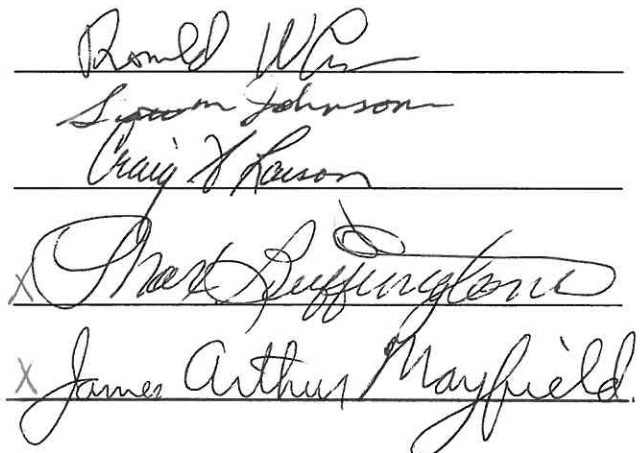 Ronald W
Johnson
Craig Larson
X Buffington
X James Arthur Mayfield.